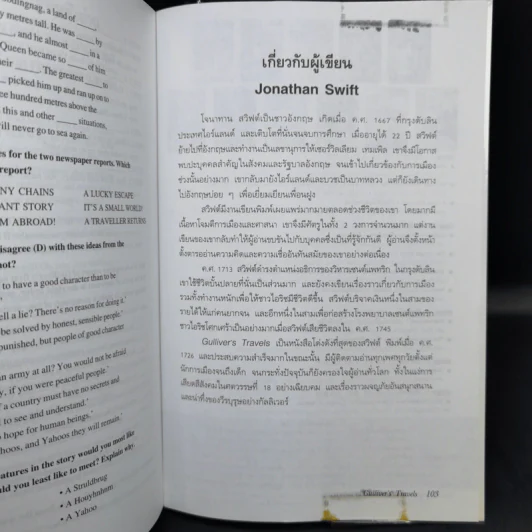 oudingnag, a land of
y metres tall. He was ____ by
____, and he almost ____ in a
Queen became so ____ of him
heir ____. The greatest ____ to
____ picked him up and ran up on to
ee hundred metres above the
this and other ____ situations,
ill never go to sea again.
es for the two newspaper reports. Which
report?
NY CHAINS A LUCKY ESCAPE
ANT STORY IT'S A SMALL WORLD!
M ABROAD! A TRAVELLER RETURNS
isagree (D) with these ideas from the
not?
to have a good character than to be
ell a lie? There's no reason for doing it.'
be solved by honest, sensible people.'
punished, but people of good character
an army at all? You would not be afraid
y, if you were peaceful people.'
f a country must have no secrets and
to see and understand.'
o hope for human beings.'
hoos, and Yahoos they will remain.'
eatures in the story would you most like
ould you least like to meet? Explain why.
• A Struldbrug
• A Houyhnhnm
• A Yahoo
เกี่ยวกับผู้เขียน
Jonathan Swift
โจนาทาน สวิฟต์เป็นชาวอังกฤษ เกิดเมื่อ ค.ศ. 1667 ที่กรุงดับลิน
ประเทศไอร์แลนด์ และเติบโตที่นั่นจนจบการศึกษา เมื่ออายุได้ 22 ปี สวิฟต์
ย้ายไปที่อังกฤษและทำงานเป็นเลขานุการให้เซอร์วิลเลียม เทมเพิล เขาจึงมีโอกาส
พบปะบุคคลสำคัญในสังคมและรัฐบาลอังกฤษ จนเข้าไปเกี่ยวข้องกับการเมือง
ช่วงนั้นอย่างมาก เขากลับมายังไอร์แลนด์และบวชเป็นบาทหลวง แต่ก็ยังเดินทาง
ไปอังกฤษบ่อย ๆ เพื่อเยี่ยมเยียนเพื่อนฝูง
สวิฟต์มีงานเขียนพิมพ์เผยแพร่มากมายตลอดช่วงชีวิตของเขา โดยมากมี
เนื้อหาโจมตีการเมืองและศาสนา เขาจึงมีศัตรูในทั้ง 2 วงการจำนวนมาก แต่งาน
เขียนของเขากลับทำให้ผู้อ่านขบขันไปกับบุคคลซึ่งเป็นที่รู้จักกันดี ผู้อ่านจึงตั้งหน้า
ตั้งตารออ่านความคิดและความเชื่ออันทันสมัยของเขาอย่างต่อเนื่อง
ค.ศ. 1713 สวิฟต์ดำรงตำแหน่งอธิการของวิหารเซนต์แพทริก ในกรุงดับลิน
เขาใช้ชีวิตบั้นปลายที่นั่นเป็นส่วนมาก และยังคงเขียนเรื่องราวเกี่ยวกับการเมือง
รวมทั้งทำงานหนักเพื่อให้ชาวไอริชมีชีวิตดีขึ้น สวิฟต์บริจาคเงินหนึ่งในสามของ
รายได้ให้แก่คนยากจน และอีกหนึ่งในสามเพื่อก่อสร้างโรงพยาบาลเซนต์แพทริก
ชาวไอริชโศกเศร้าเป็นอย่างมากเมื่อสวิฟต์เสียชีวิตลงใน ค.ศ. 1745
Gulliver's Travels เป็นหนังสือโด่งดังที่สุดของสวิฟต์ พิมพ์เมื่อ ค.ศ.
1726 และประสบความสำเร็จมากในขณะนั้น มีผู้ติดตามอ่านทุกเพศทุกวัยตั้งแต่
นักการเมืองจนถึงเด็ก จนกระทั่งปัจจุบันก็ยังครองใจผู้อ่านทั่วโลก ทั้งในแง่การ
เสียดสีสังคมในศตวรรษที่ 18 อย่างเฉียบคม และเรื่องราวผจญภัยอันสนุกสนาน
และน่าทึ่งของวีรบุรุษอย่างกัลลิเวอร์
Gulliver's Travels 103